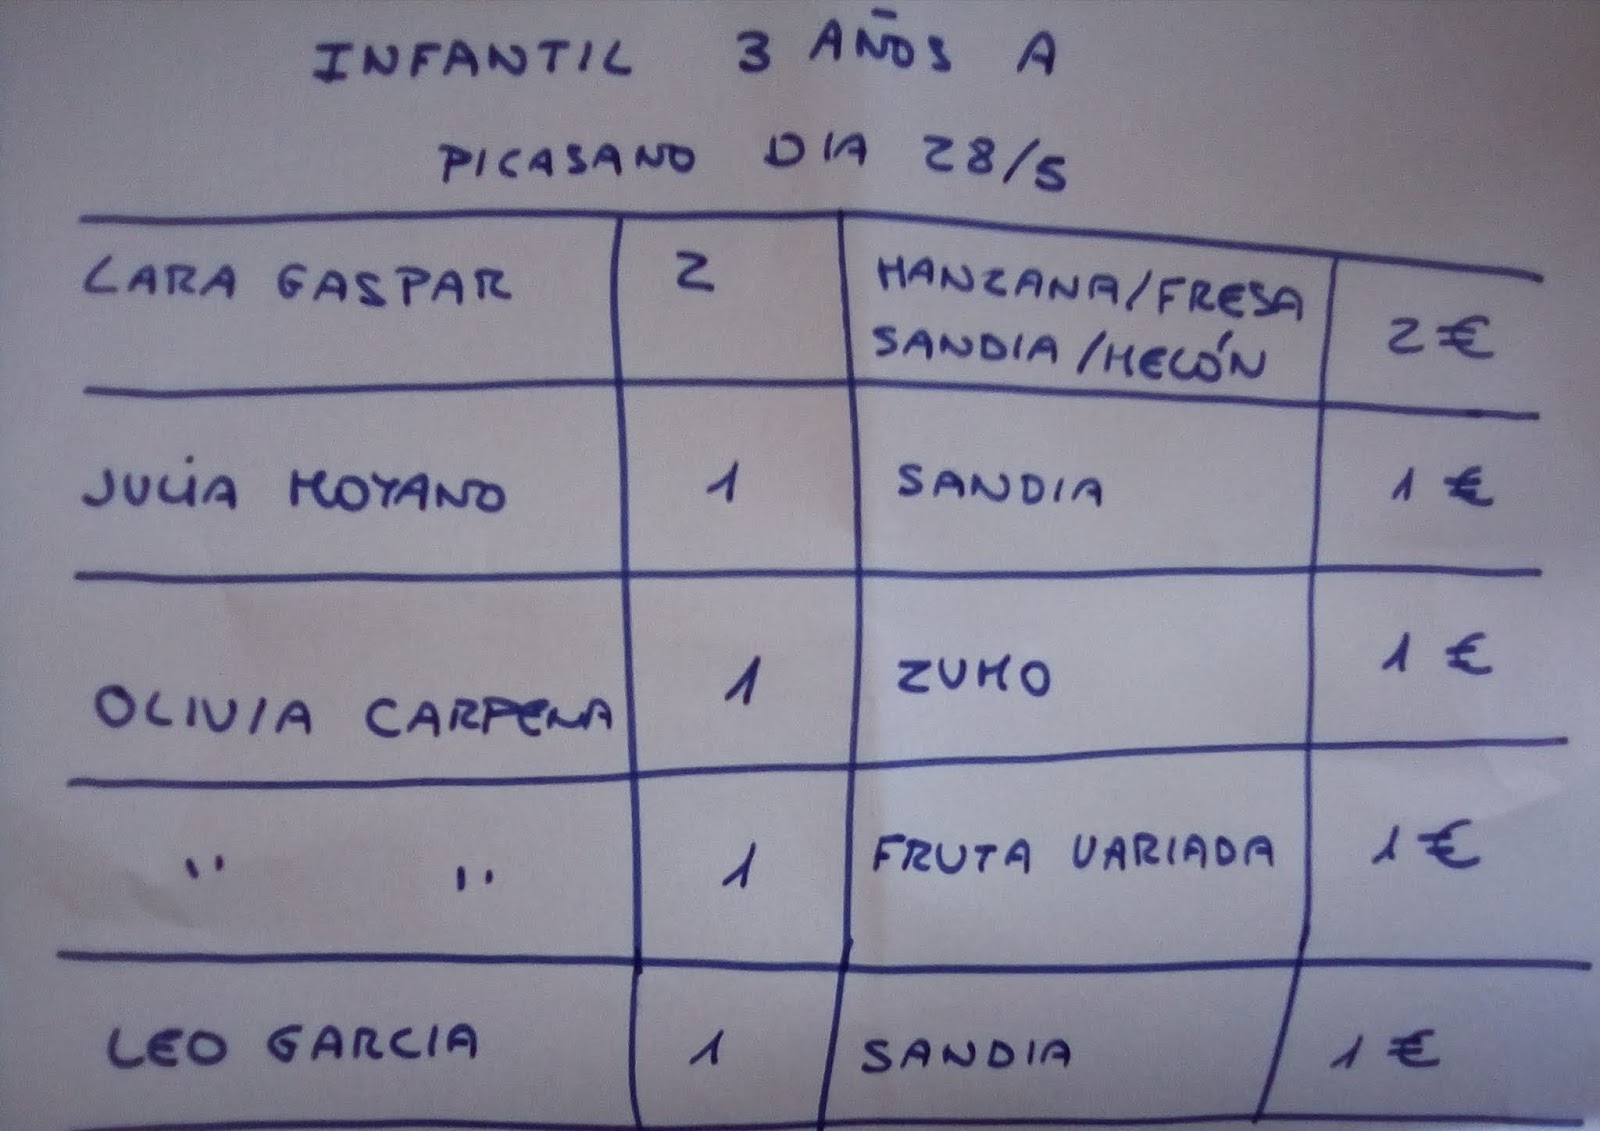 INFANTIL 3 AÑOS A
PICASANO DIA 28/5
LARA GASPAR 2 MANZANA/FRESA
SANDIA/MELÓN 2 €
JULIA MOYANO 1 SANDIA 1 €
OLIVIA CARPENA 1 ZUMO 1 €
" " 1 FRUTA VARIADA 1 €
LEO GARCIA 1 SANDIA 1 €